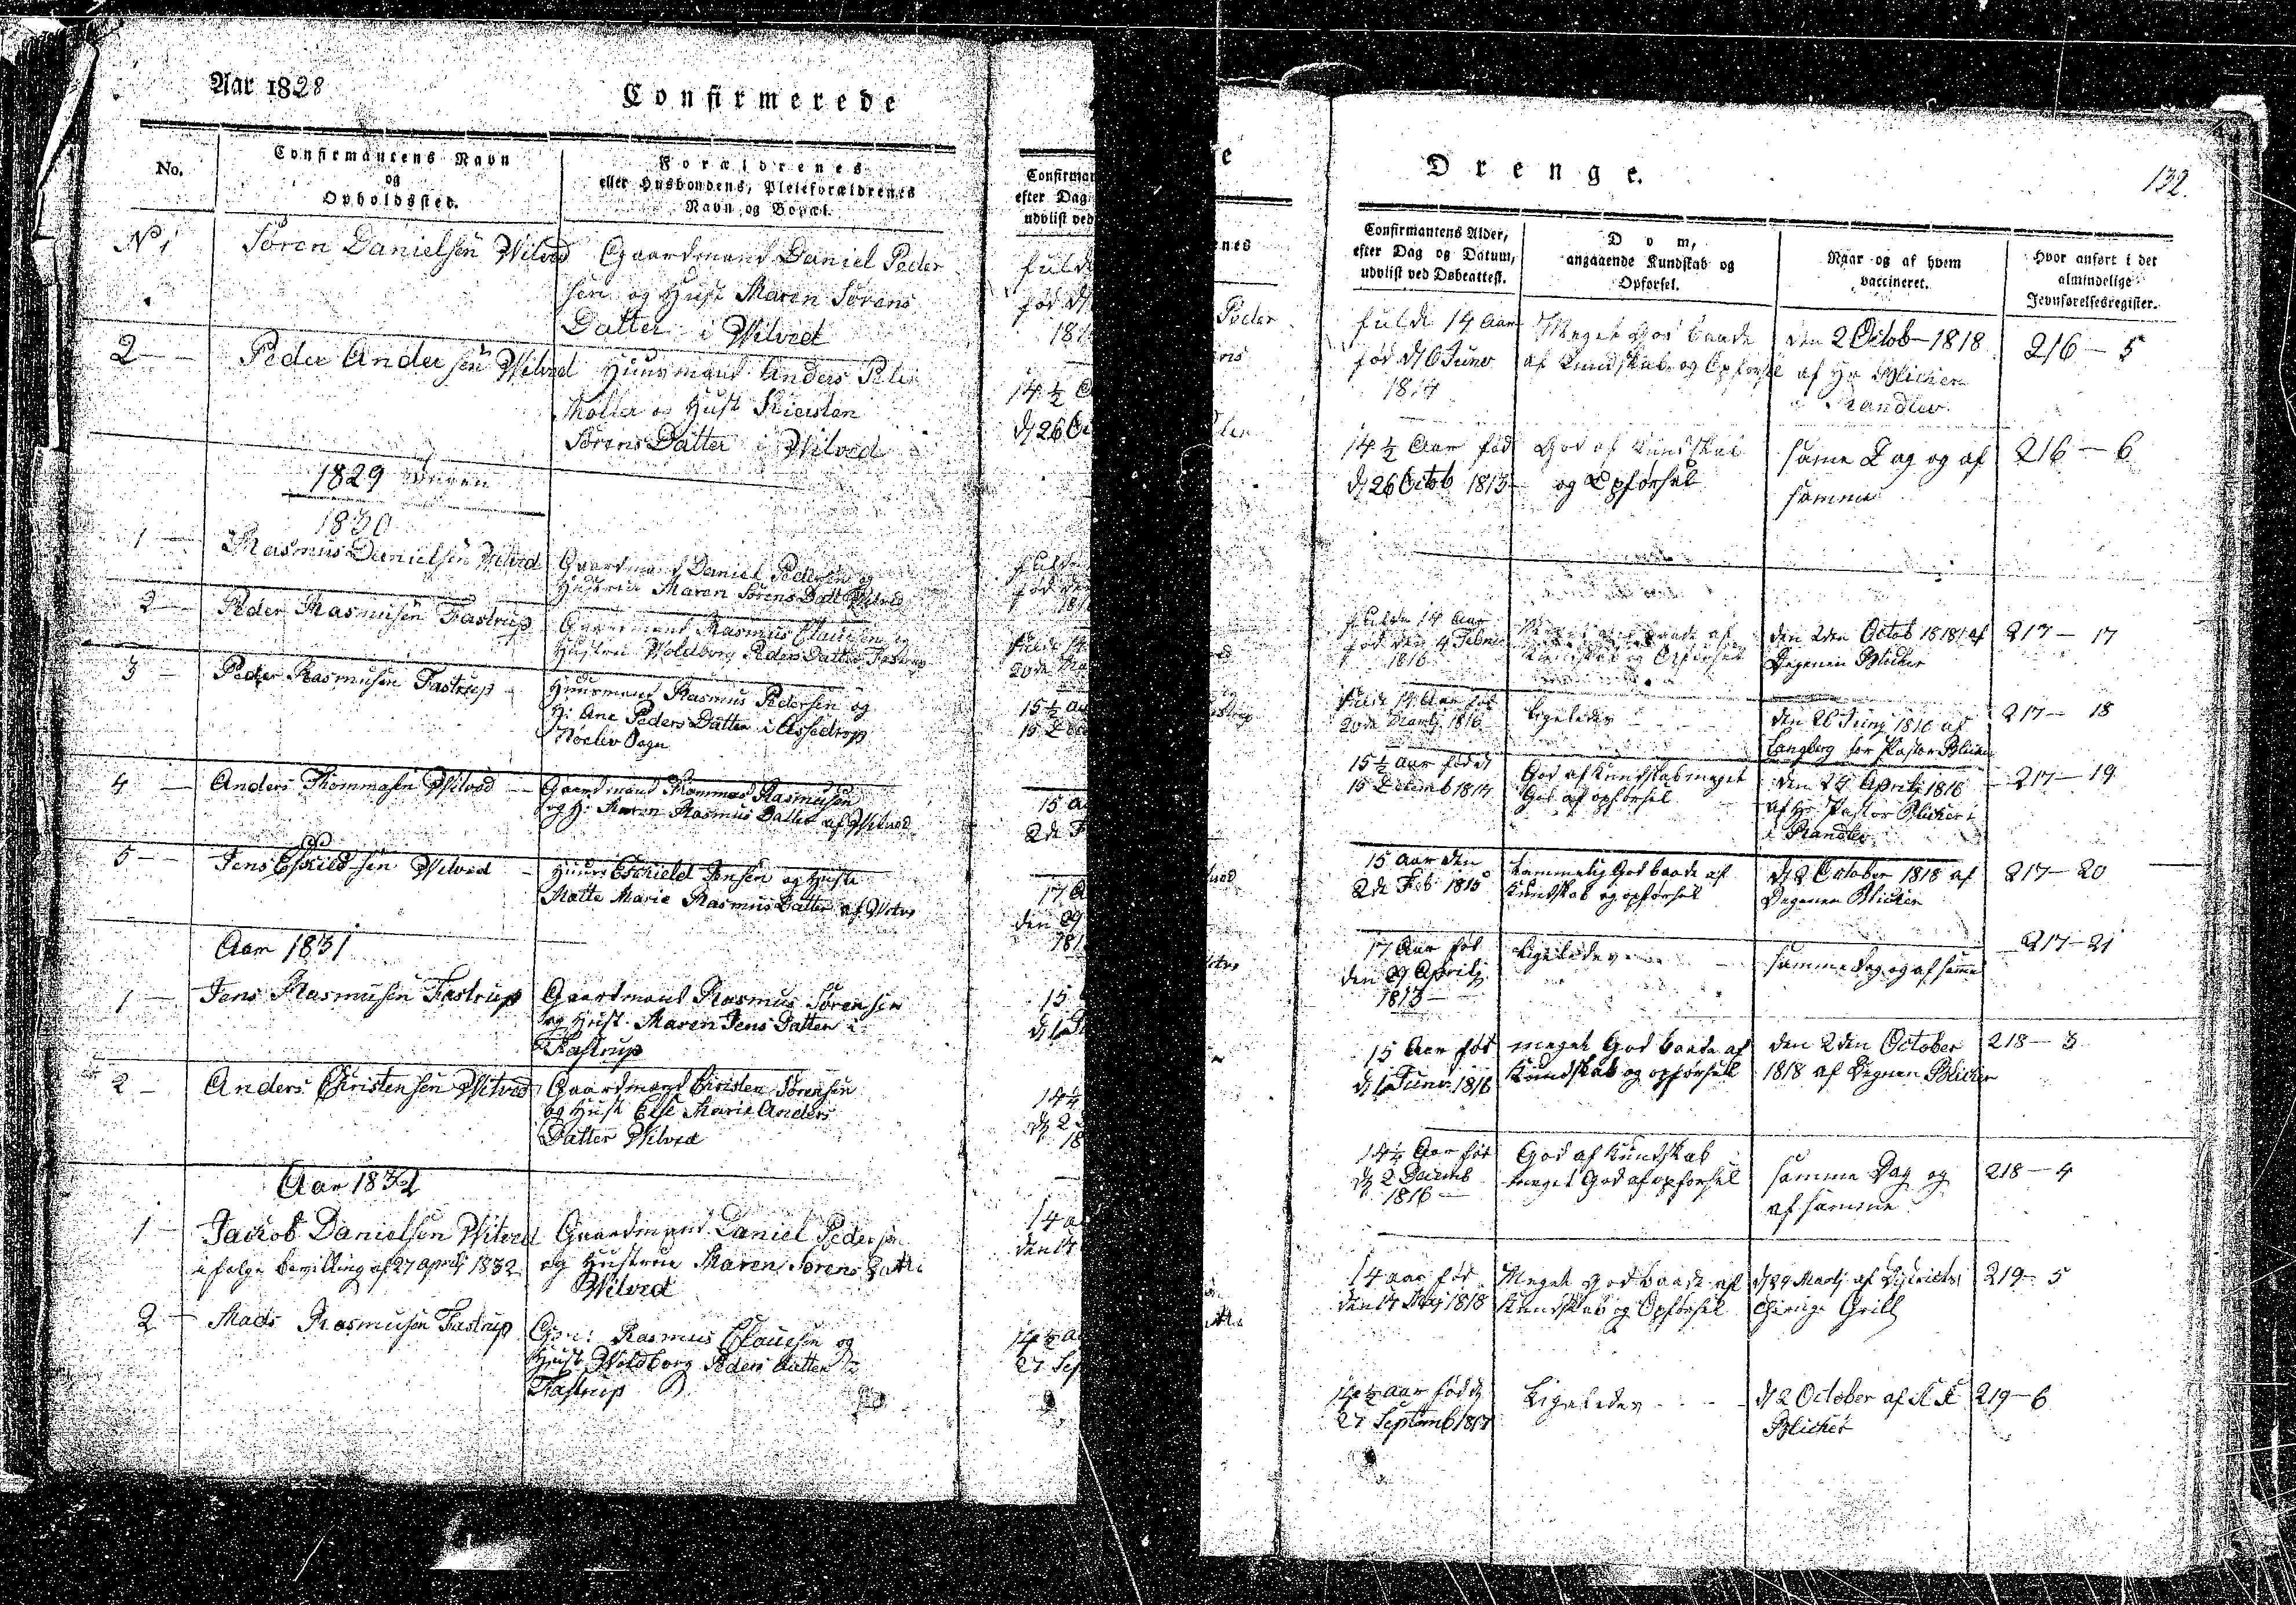 Aar 1828
Confirmerede
No.
Confirmantens Navn
og
Opholdssted.
Forældrenes
eller Husbondens, Pleieforældrenes
Navn og Bopæl.
No 1
Søren Danielsen Wilved
Gaardmand Daniel Peder
sen og Hust Maren Sørens
Datter i Wilved
2
Peder Andersen Wilved
Huusmand Anders Peder
Møller og Hust Kiersten
Sørens Datter i Wilved
1829
1830
1
Rasmus Danielsen Wilved
Gaardmand Daniel Pedersen og
Hustrue Maren Sørens Datt Wilved
2
Peder Rasmusen Fastrup
Gaardmand Rasmus Clausen og
Hustrue Woldborg Peders Datter Fastrup
3
Peder Rasmusen Fastrup
Huusmand Rasmus Pedersen og
H: Ane Peders Datter i Assedrup
Nøelev Sogn
4
Anders Thommasen Wilved
Gaardmand Thommas Rasmusen
og H: Maren Rasmus Datter af Wilved
5
Jens Eskildsen Wilved
Huusm Eskield Jensen og Hust
Mette Marie Rasmus Datter af Wilved
Aar 1831
1
Jens Rasmusen Fastrup
Gaardmand Rasmus Sørensen
og Hust. Maren Jens Datter i
Fastrup
2
Anders Christensen Wilved
Gaardmand Christen Sørensen
og Hust Else Marie Anders
Datter Wilved
Aar 1832
1
Jackob Danielsen Wilved
i følge bevilling af 27 april 1832
Gaardmand Daniel Pedersen
og Hustrue Maren Sørens Datter
Wilved
2
Mads Rasmusen Fastrup
Gm: Rasmus Clausen og
Hust Woldborg Peders Datter
Fastrup
Drenge.
132.
Confirmantens Alder,
efter Dag og Datum,
udvist ved Døbeattest.
Dom,
angaaende Kundskab og
Opførsel.
Naar og af hvem
vaccineret.
Hvor anført i det
almindelige
Jevnførelsesregister.
fulde 14 Aar
fød d 6 Juno
1814
Meget God baade
af Kundskab og Opførsel
den 2 Octob 1818
af Hr Blicher
i Randlev
216 - 5
14 ½ Aar fød
d 26 Octob 1813
God af Kundskab
og Opførsel
same Dag og af
samme
216 - 6
fulde 14 Aar
fød den 4 Febru
1816
Meget God baade af
Kundskab og Opførsel
den 2den Octob 1818 af
Degenen Blicher
217 - 17
fulde 14 Aar fød
20de Martj 1816
Ligeledes
den 26 Junj 1816 af
Langberg for Pastor Blicher
217 - 18
15 ½ Aar fød d
15 Decemb 1814
God af Kundskab meget
God af opførsel
den 24 Aprilj 1816
af Hr Pastor Blicher i
i Randlev
217 - 19
15 Aar den
2de Feb 1815
Temmelig God baade af
Kundskab og opførsel
d 2 October 1818 af
Degenen Blicher
217 - 20
17 Aar fød
den 29 Aprilj
1813
Ligeledes
samme Dag og af samme
217 - 21
15 Aar fød
1816
meget God baade af
Kundskab og opførsel
den 2den October
1818 af Degnen Blicher
218 - 3
14 ¼ Aar fød
d 2 Decemb
1816
God af Kundskab
meget God af opførsel
samme Dag og
af samme
218 - 4
14 aar fød
den 14 Maj 1818
Meget god baade af
Kundskab og Opførsel
d 29 Martj af Districts
Chirurge Grill
219 - 5
14 ½ aar fød d
27 Septemb 1817
Ligeledes
d 2 October af
Blicher
219 - 6